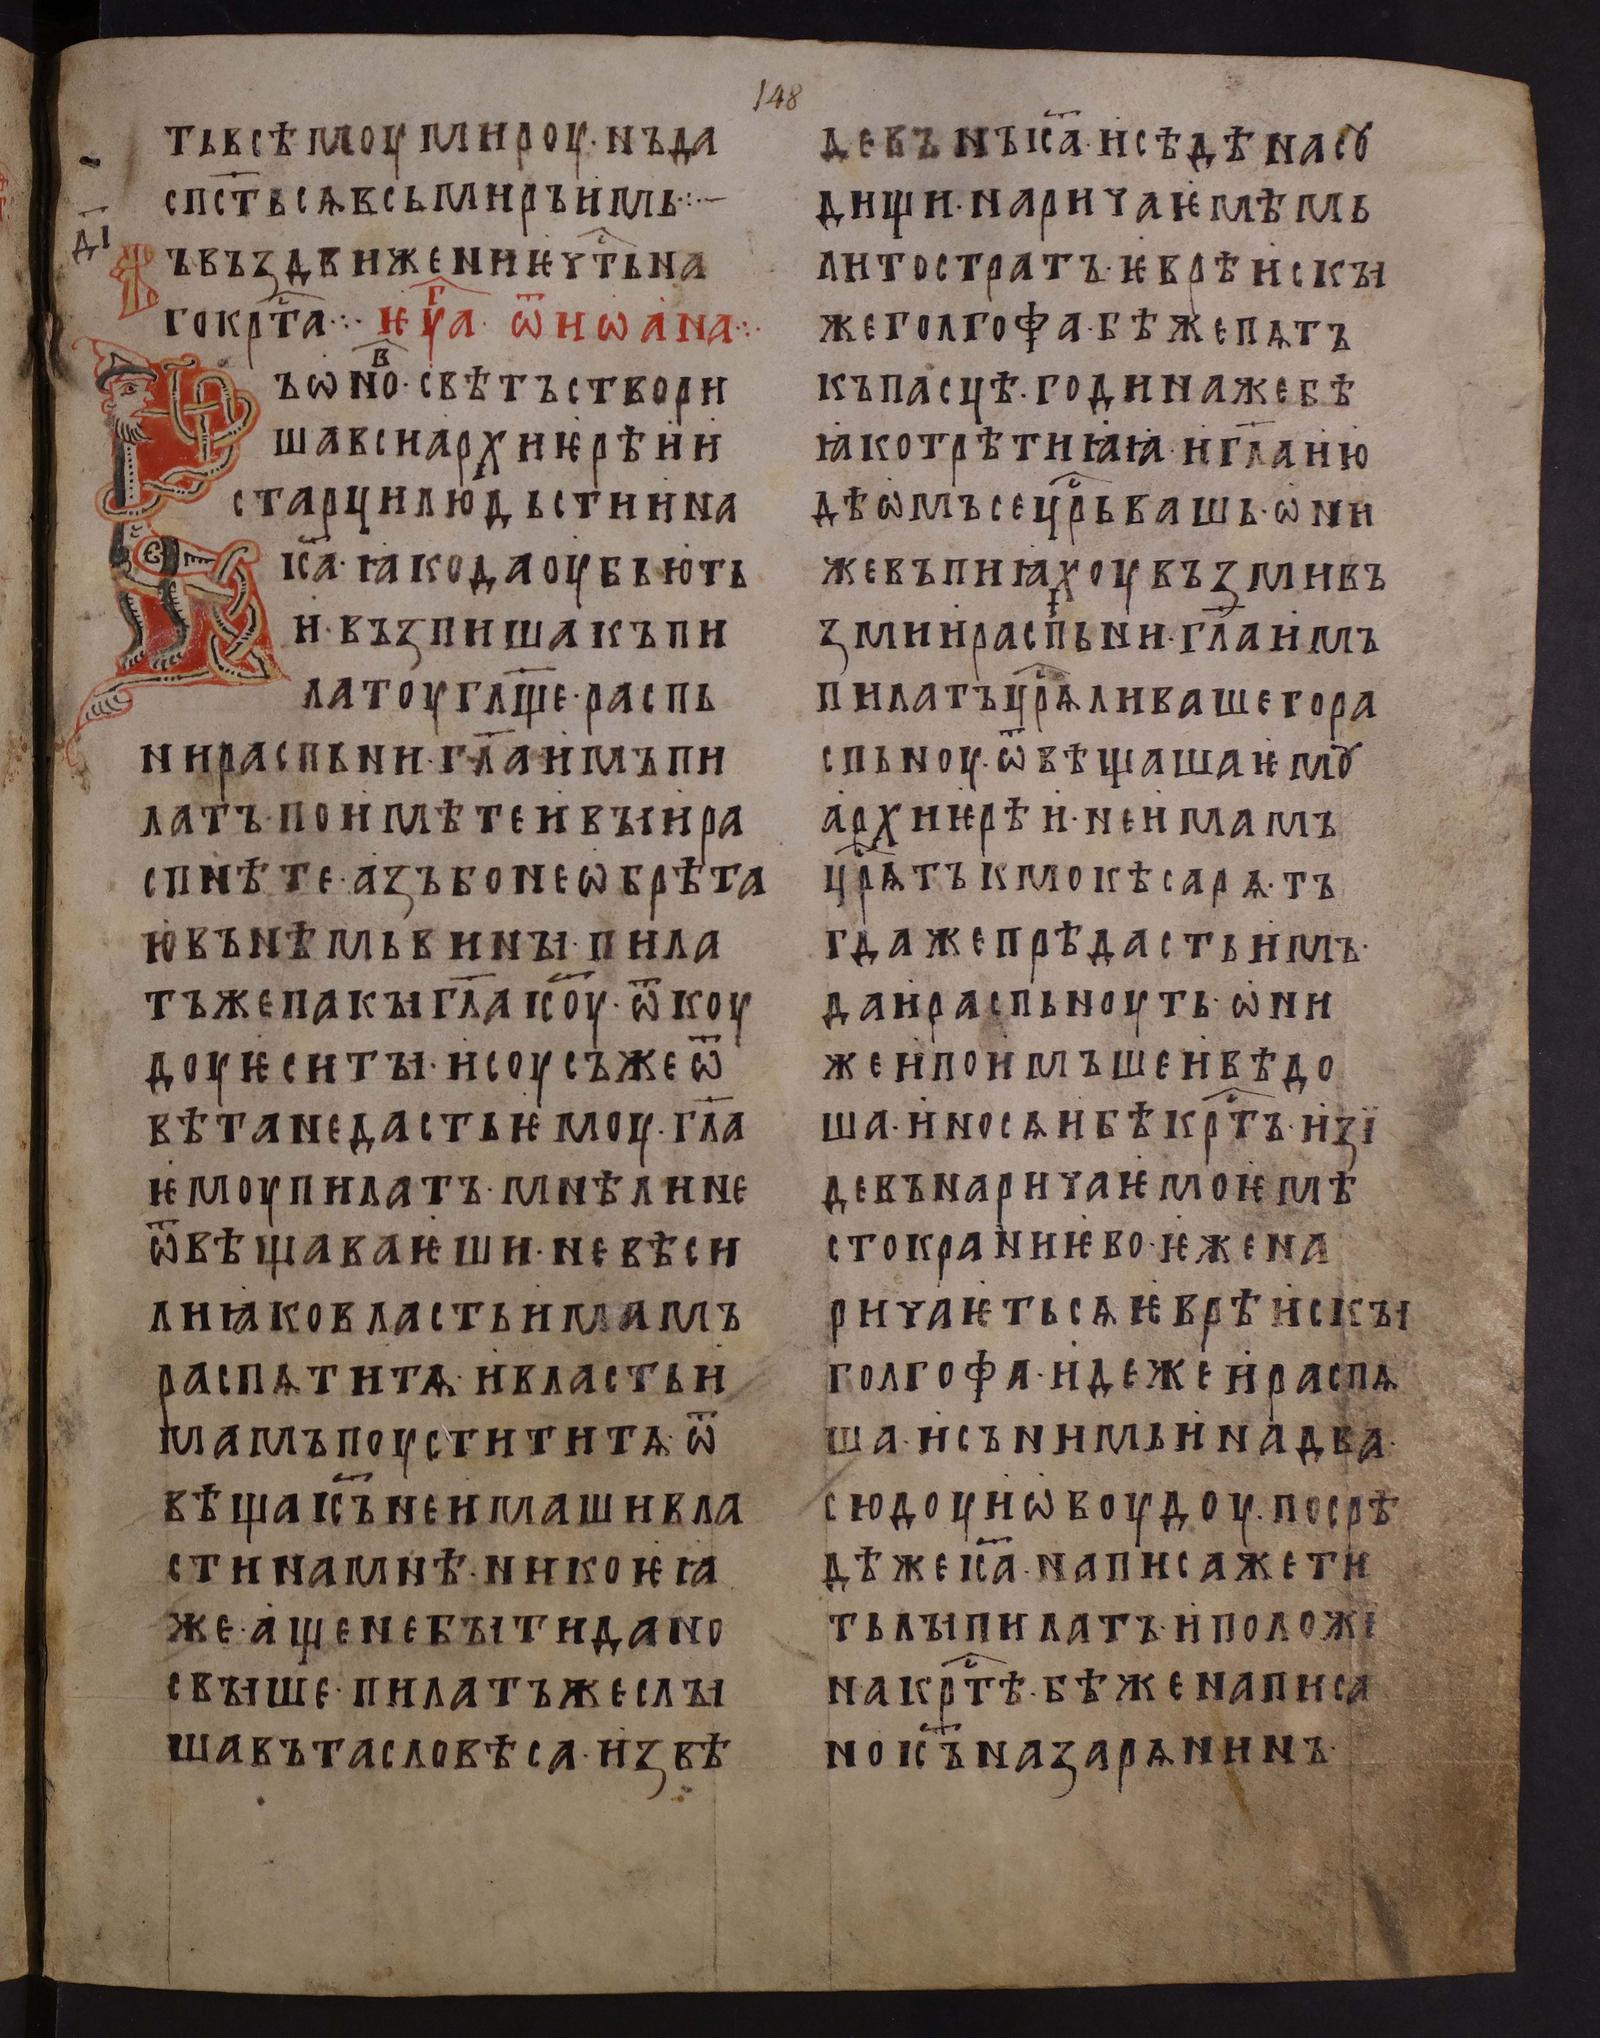 148
тьвсѣмоу мироу· нъда
сп͠стьсѧвсьмиръимь·:–
д҃і
ъвъздвижениѥч҇тьна
гокр҇та·:· ѥѵ҇га· ѿ иѡана·:·
Въѡ҇но· свѣтъствори
шавсиархиѥрѣии
старциилюдьстиина
і҃са· ꙗкодаоубьють
и· възпишакъпи
латоугл҃ще· распь
нираспьни· гл҃аимъпи
латъ· поимѣтеивꙑира
спнѣте· азъбонеѡбрѣта
ювънѣмьвинꙑ· пила
тъжепакꙑгл҃аі҃соу· ѿкоу
доуѥситꙑ· исоусъжеѿ
вѣтанедастьѥмоу· гл҃а
ѥмоупилатъ· мнѣлине
ѿвѣщаваѥши· невѣси
лиꙗковластьимамъ
распѧтитѧ· ивластьи
мамъпоустититѧ· ѿ
вѣщаі҃сънеимашивла
стинамнѣ· никоѥꙗ
же· ащенебꙑтидано
свꙑше· пилатъжеслꙑ
шавътасловѣса· извѣ
девъныі҃са· исѣдѣнасꙋ
дищи· наричаѥмѣмь
литостратъ· ѥврѣискꙑ
жеголгофа· бѣжепѧтъ
къпасцѣ· годинажебѣ
ꙗкотрѣтиꙗꙗ· игл҃аию
дѣѡмъсец҇рьвашь· ѡни
жевъпиꙗхоувъзмивъ
змиираспьни· гл҃аимъ
пилатъц҇рѧливашегора
спьноу· ѿвѣщашаѥмꙋ
архиѥрѣи· неимамъ
ц҇рѧтъкмокѣсарѧ· тъ
гдажепрѣдастьимъ·
даираспьноуть· ѡни
жеипоимъшеивѣдо
ша· иносѧибѣкр҇тъ· изї
девънаричаѥмоѥмѣ
стокраниѥво· ѥжена
ричаѥтьсѧѥврѣискꙑ
голгофа· идежеираспѧ
ша· исънимьинадва·
сюдоуиѡвоудоу· посрѣ
дѣжеі҃са· написажети
тьлꙑпилатъ· иположї
накр҇тѣ· бѣженаписа
ноі҃съназарѧнинъ·